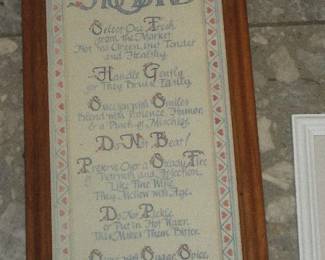 Select One Fresh
from the Market
Not Too Green, but Tender
and Healthy.
Handle Gently
or They Bruise Easily.
Season with Smiles
Blend with Patience, Humor,
& a Pinch of Mischief.
Do Not Beat!
Preserve Over a Steady Fire
of Patience and Affection,
Like Fine Wine
They Mellow with Age.
Do Not Pickle
or Put in Hot Water
This Makes Them Bitter.
Sugar Spice